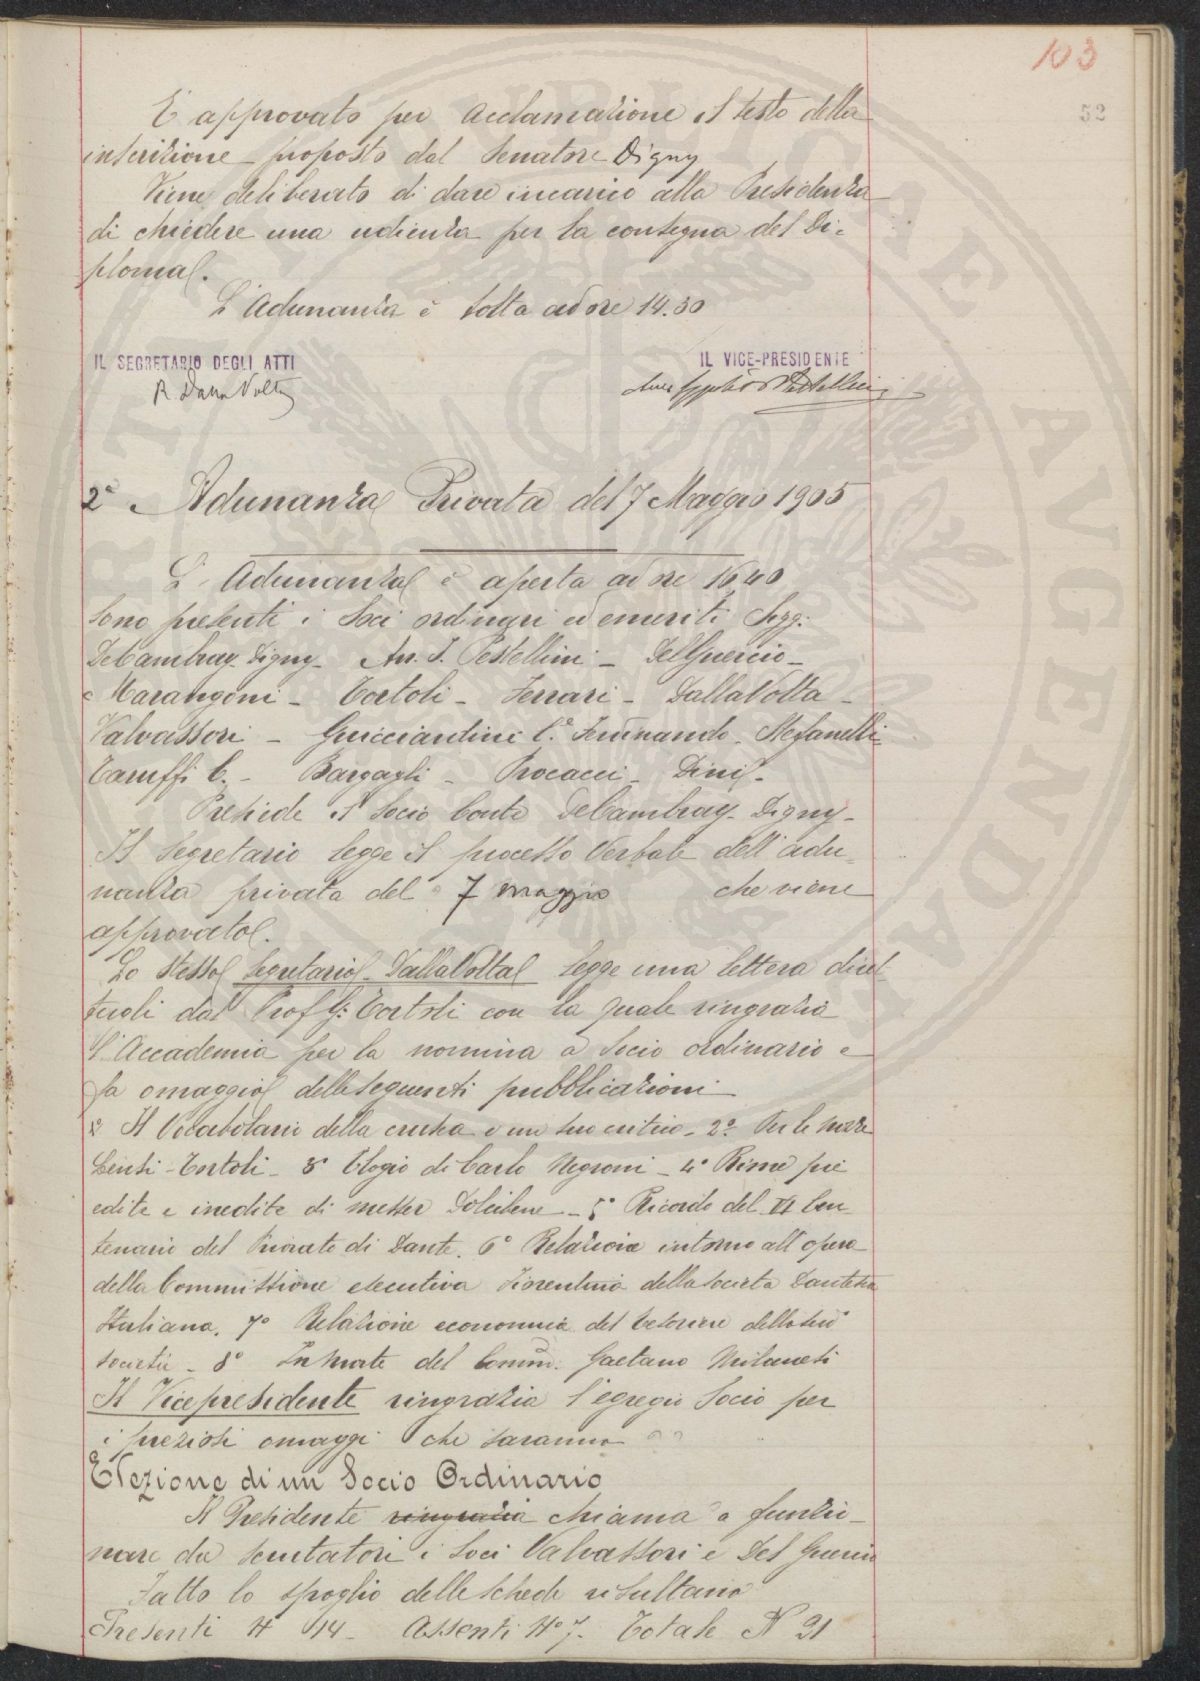 103
52
E' approvato per acclamazione il testo della
inscrizione proposto dal Senatore Digny
Viene deliberato di dare incarico alla Presidenza
di chiedere una udienza per la consegna del Di-
ploma.
L'Adunanza è tolta ad ore 14.30
IL SEGRETARIO DEGLI ATTI
IL VICE-PRESIDENTE
R. Dalla Volta
2ª Adunanza Privata del 7 Maggio 1905
L'Adunanza è aperta ad ore 16,40
Sono presenti i Soci ordinari ed emeriti Sigg:
DeCambray-Digny - Av. I. Pestellini - DelGuercio -
Marangoni - Tortoli - Ferrari - DallaVolta -
Valvassori - Guicciardini C.e Ferdinando - Stefanelli
Taruffi C. - Bargagli - Procacci - Dini -
Presiede il Socio Conte DeCambray-Digny -
Il Segretario legge il processo Verbale dell'adu-
nanza privata del 7 maggio che viene
approvato.
Lo stesso Segretario DallaVolta legge una lettera diret-
tagli dal Prof G: Tortoli con la quale ringrazia
l'Accademia per la nomina a Socio ordinario e
fa omaggio delle seguenti pubblicazioni
1º Il Vocabolario della crusca e un suo critico - 2º Per le nozze
Lensi-Tortoli - 3º Elogio di Carlo Negroni - 4º Rime
edite e inedite di messer Dolcibene - 5º Ricordo del VI Cen-
tenario del Priorato di Dante. 6º Relazione intorno all'opera
della Commissione esecutiva Fiorentina della Società Dantesca
Italiana. 7º Relazione economica del Tesoriere della
società - 8º In morte del Comm. Gaetano Milanesi
Il Vicepresidente ringrazia l'egregio Socio per
i preziosi omaggi che saranno
Elezione di un Socio Ordinario
Il Presidente ringrazia chiama a funzio-
nare da scrutatori i Soci Valvassori e Del Guercio
Fatto lo spoglio delle schede risultano
Presenti Nº 14 - Assenti Nº 7. Totale Nº 21